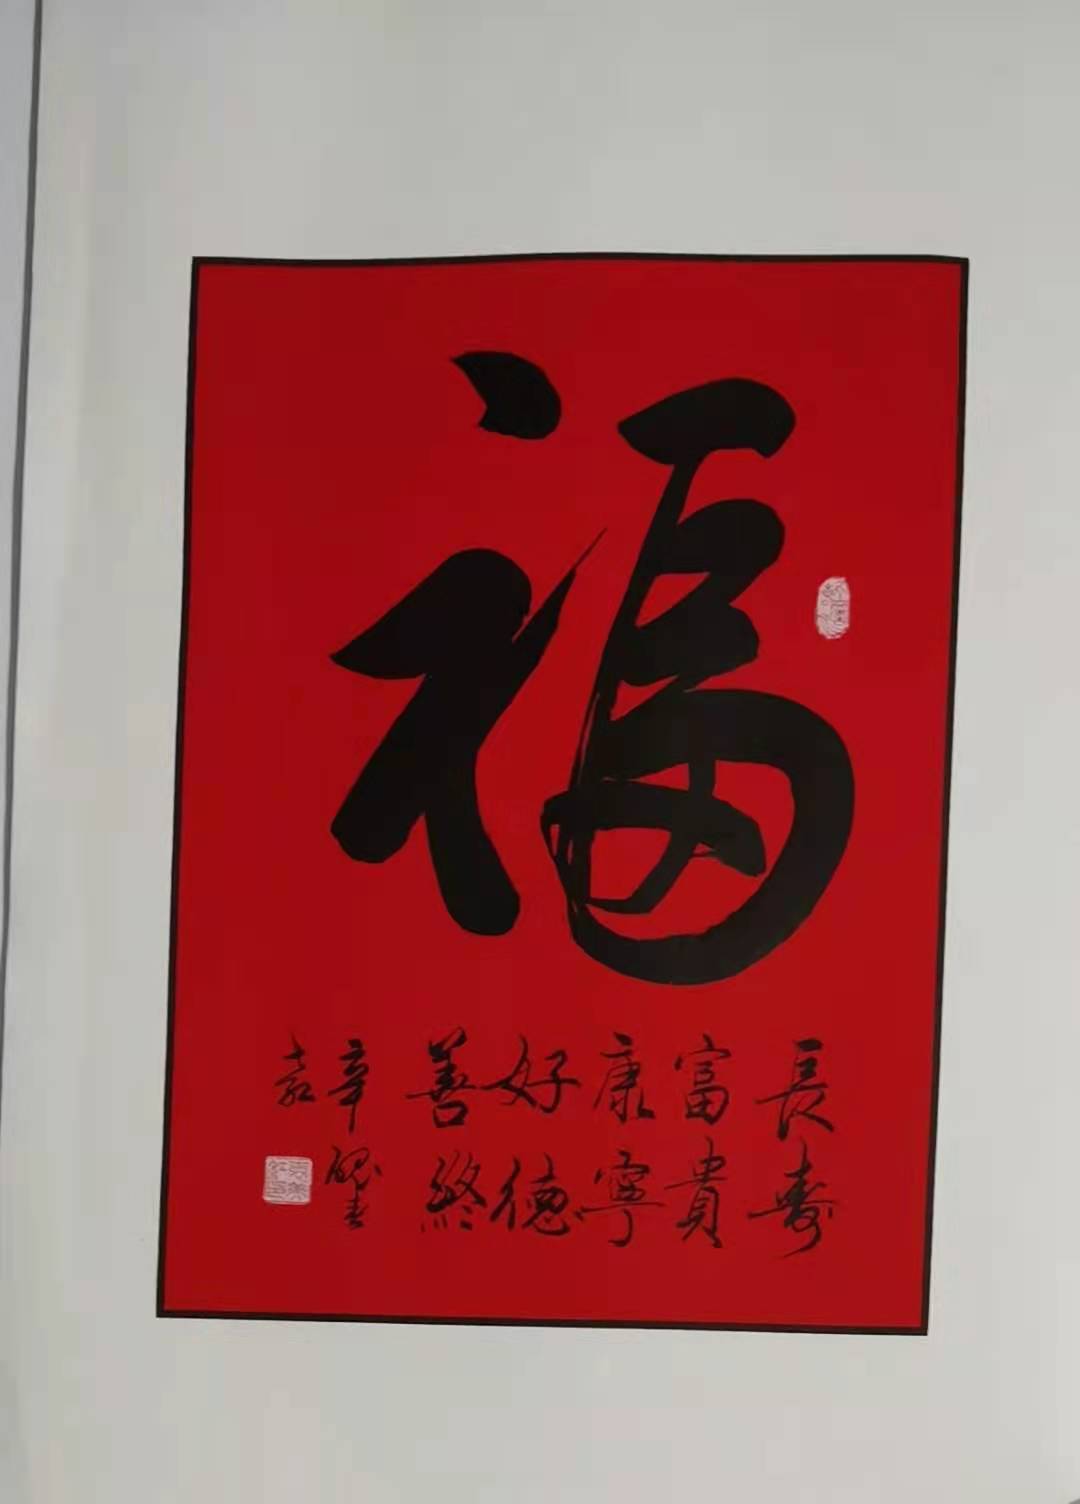 福
長壽
富貴
康寧
好德
善終
辛